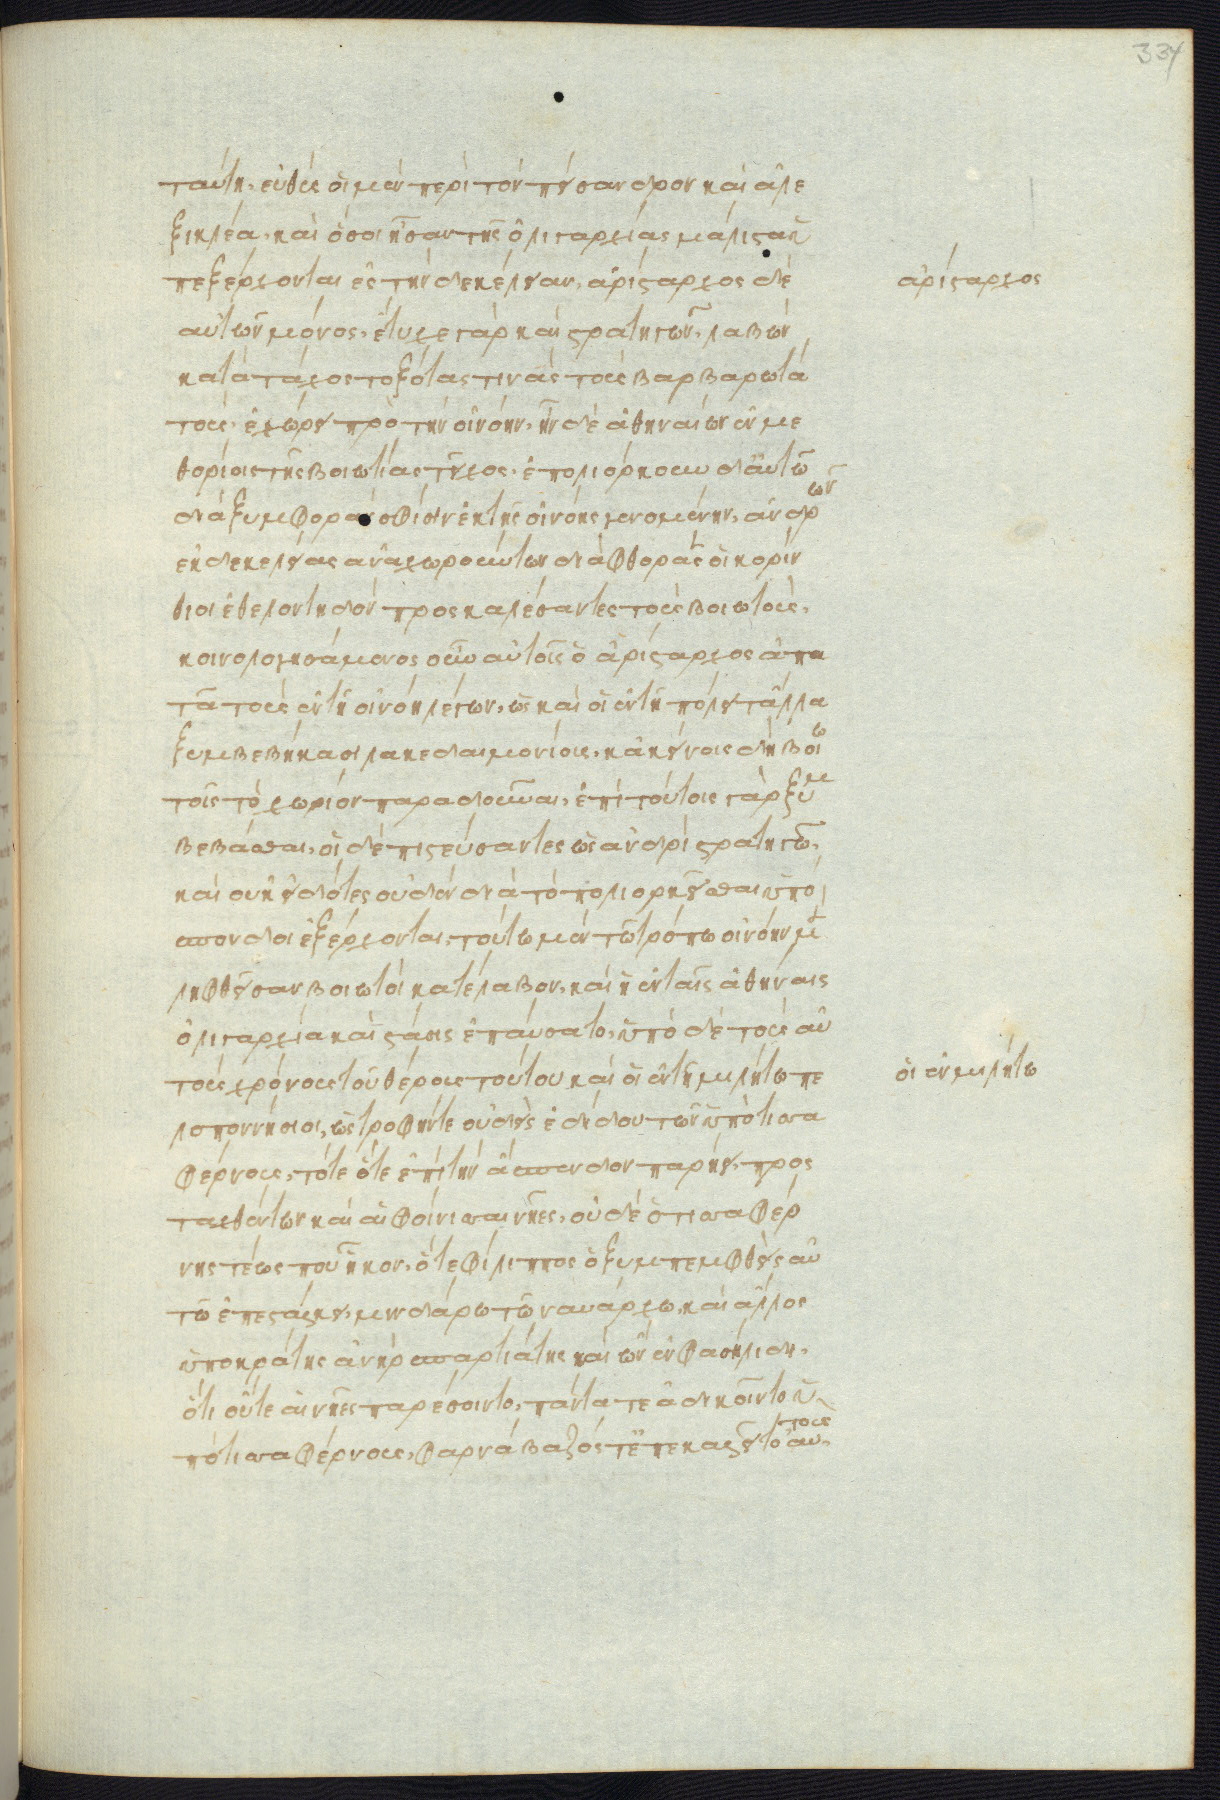 334
ταύτη, εὐθὺς οἱ μὲν περὶ τὸν πείσανδρον καὶ ἀλε
ξικλέα, καὶ ὅσοι ἦσαν τῆς ὀλιγαρχίας μάλιστα ὑ
πεξέρχονται ἐς τὴν δεκέλειαν, ἀρίσταρχος δὲ
αὐτῶν μόνος, ἔτυχε γὰρ καὶ στρατηγῶν, λαβὼν
κατὰ τάχος τοξότας τινὰς τοὺς βαρβαρωτά
τους, ἐχώρει πρὸ τὴν οἰνόην, ἦν δὲ ἀθηναίων ἐν με
θορίοις τῆς βοιωτίας τεῖχος, ἐπολιόρκουν δ' αὐτὸ
διὰ ξυμφορὰν σφίσιν ἐκ τῆς οἰνόης γενομένην, ἀνδρῶν
ἐκ δεκελείας ἀναχωρούντων διαφθορᾶς οἱ κορίν
θιοι ἐθελοντηδὸν προσκαλέσαντες τοὺς βοιωτούς,
κοινολογησάμενος οὖν αὐτοῖς ὁ ἀρίσταρχος ἀπα
τᾶ τοὺς ἐν τῆ οἰνόη λέγων, ὡς καὶ οἱ ἐν τῆ πόλει τἆλλα
ξυμβεβήκασι λακεδαιμονίοις, κἀκείνους δεῖ βοιω
τοῖς τὸ χωρίον παραδοῦναι, ἐπὶ τούτοις γὰρ ξυμ
βεβάσθαι, οἱ δὲ πιστεύσαντες ὡς ἀνδρὶ στρατηγῶ,
καὶ οὐκ εἰδότες οὐδὲν διὰ τὸ πολιορκεῖσθαι ὑπό
σπονδοι ἐξέρχονται, τούτω μὲν τῶ τρόπω οἰνόην μὲν
ληφθεῖσαν βοιωτοὶ κατέλαβον, καὶ ἡ ἐν ταῖς ἀθήναις
ὀλιγαρχία καὶ στάσις ἐπαύσατο, ὑπὸ δὲ τοὺς αὐ
τοὺς χρόνους τοῦ θέρους τούτου καὶ οἱ ἐν τῆ μιλήτω πε
λοποννήσιοι, ὡς τροφήν τε οὐδεὶς ἐδίδου τῶν ὑπὸ τισσα
φέρνους, τότε ὅτε ἐπὶ τὴν ἄσπενδον παρήει, προς
ταχθέντων καὶ αἱ φοίνισσαι νῆες, οὐδὲ ὁ τισσαφέρ
νης τέως που ἧκον, ὅ τε φίλιππος ὁ ξυμπεμφθεὶς αὐ
τῶ ἐπεστάλκει, μινδάρω τῶ ναυάρχω, καὶ ἄλλος
ἱπποκράτης ἀνὴρ σπαρτιάτης καὶ ὢν ἐν φασήλιδι,
ὅτι οὔτε αἱ νῆες παρέσοιντο, πάντα τε ἀδικοῖντο ὑ
πὸ τισσαφέρνους, φαρνάβαζός τε ἐπεκαλεῖτο αὐτοὺς,
ἀρίσταρχος
οἱ ἐν μιλήτω